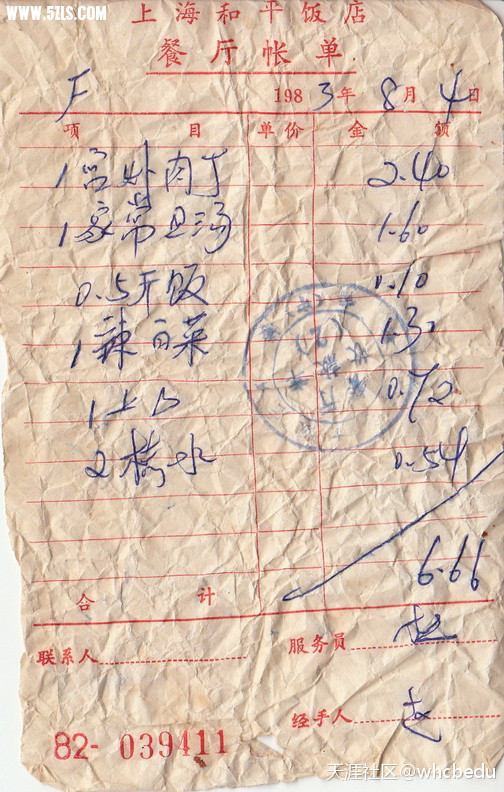 www.5ZLS.com
上海和平饭店
餐厅帐单
F 1983年8月4日
项目 单价 金额
1 宫处肉丁 2.40
1 家常豆汤 1.60
0.5斤饭 0.10
1 辣白菜 1.30
1 0.72
2 桔水 0.54
合计 6.66
联系人 服务员 赵
经手人 赵
82-039411
天涯社区@whcbedu